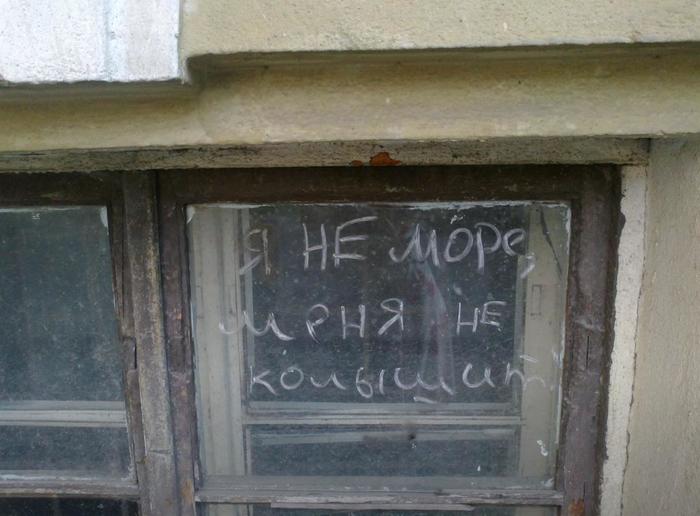 я НЕ море,
меня НЕ
колышит!